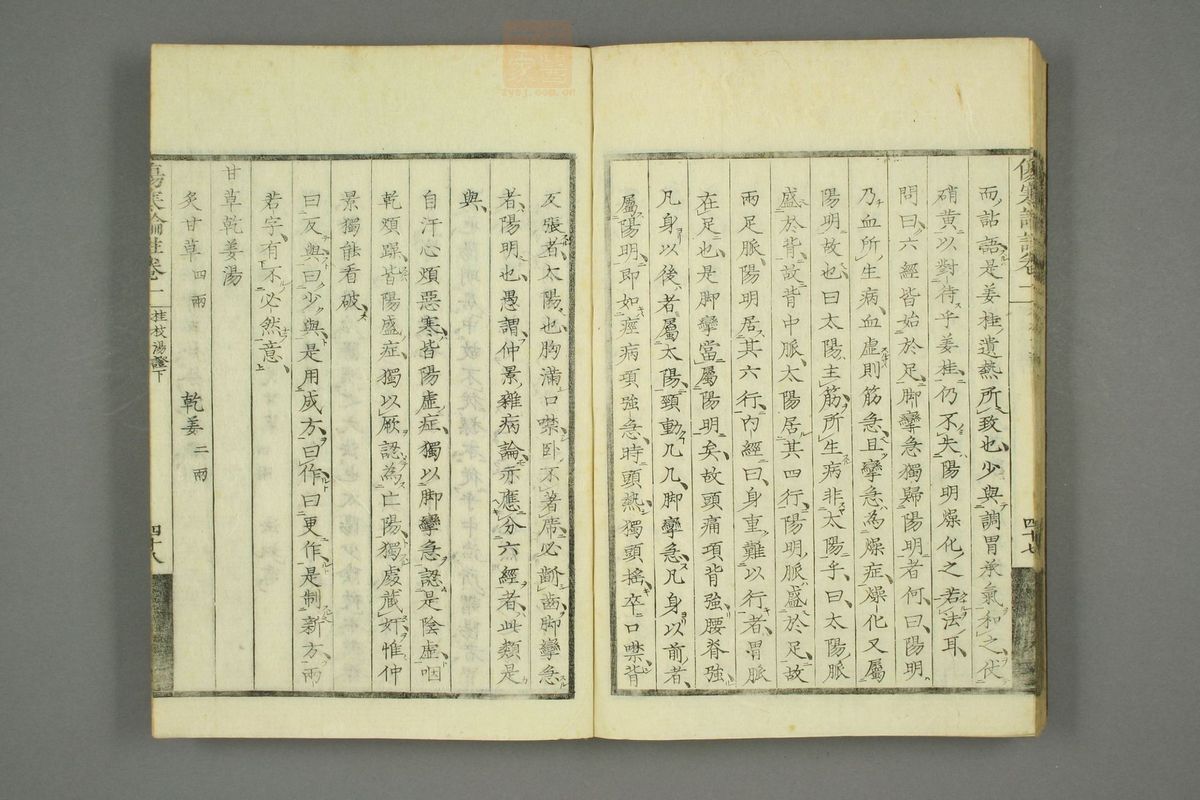 傷寒論註卷二
而譫語是姜桂遺熱所致也少與調胃承氣和之仗
硝黃以對待乎姜桂仍不失陽明燥化之若法耳
問曰六經皆始於足脚攣急獨歸陽明者何曰陽明
乃血所生病血虛則筋急且攣急為燥症燥化又屬
陽明故也曰太陽主筋所生病非太陽乎曰太陽脈
盛於背故背中脈太陽居其四行陽明脈盛於足故
兩足脈陽明居其六行內經曰身重難以行者胃脈
在足也是脚攣當屬陽明矣故頭痛項背強腰脊強
凡身以後者屬太陽頸動几几脚攣急凡身以前者
屬陽明即如痙病項強急時頭熱獨頭搖卒口噤背
四十七
反張者太陽也胸滿口噤卧不著席必齘齒脚攣急
者陽明也愚謂仲景雜病論亦應分六經者此類是
與
自汗心煩惡寒皆陽虛症獨以脚攣急認是陰虛咽
乾煩躁皆陽盛症獨以厥認為亡陽獨處藏奸惟仲
景獨能看破
曰反與曰少與是用成方曰作曰更作是制新方兩
若字有不必然意
甘草乾姜湯
炙甘草 四兩 乾姜 二兩
傷寒論註卷二 桂枝湯證下
四十八
zysj.com.cn